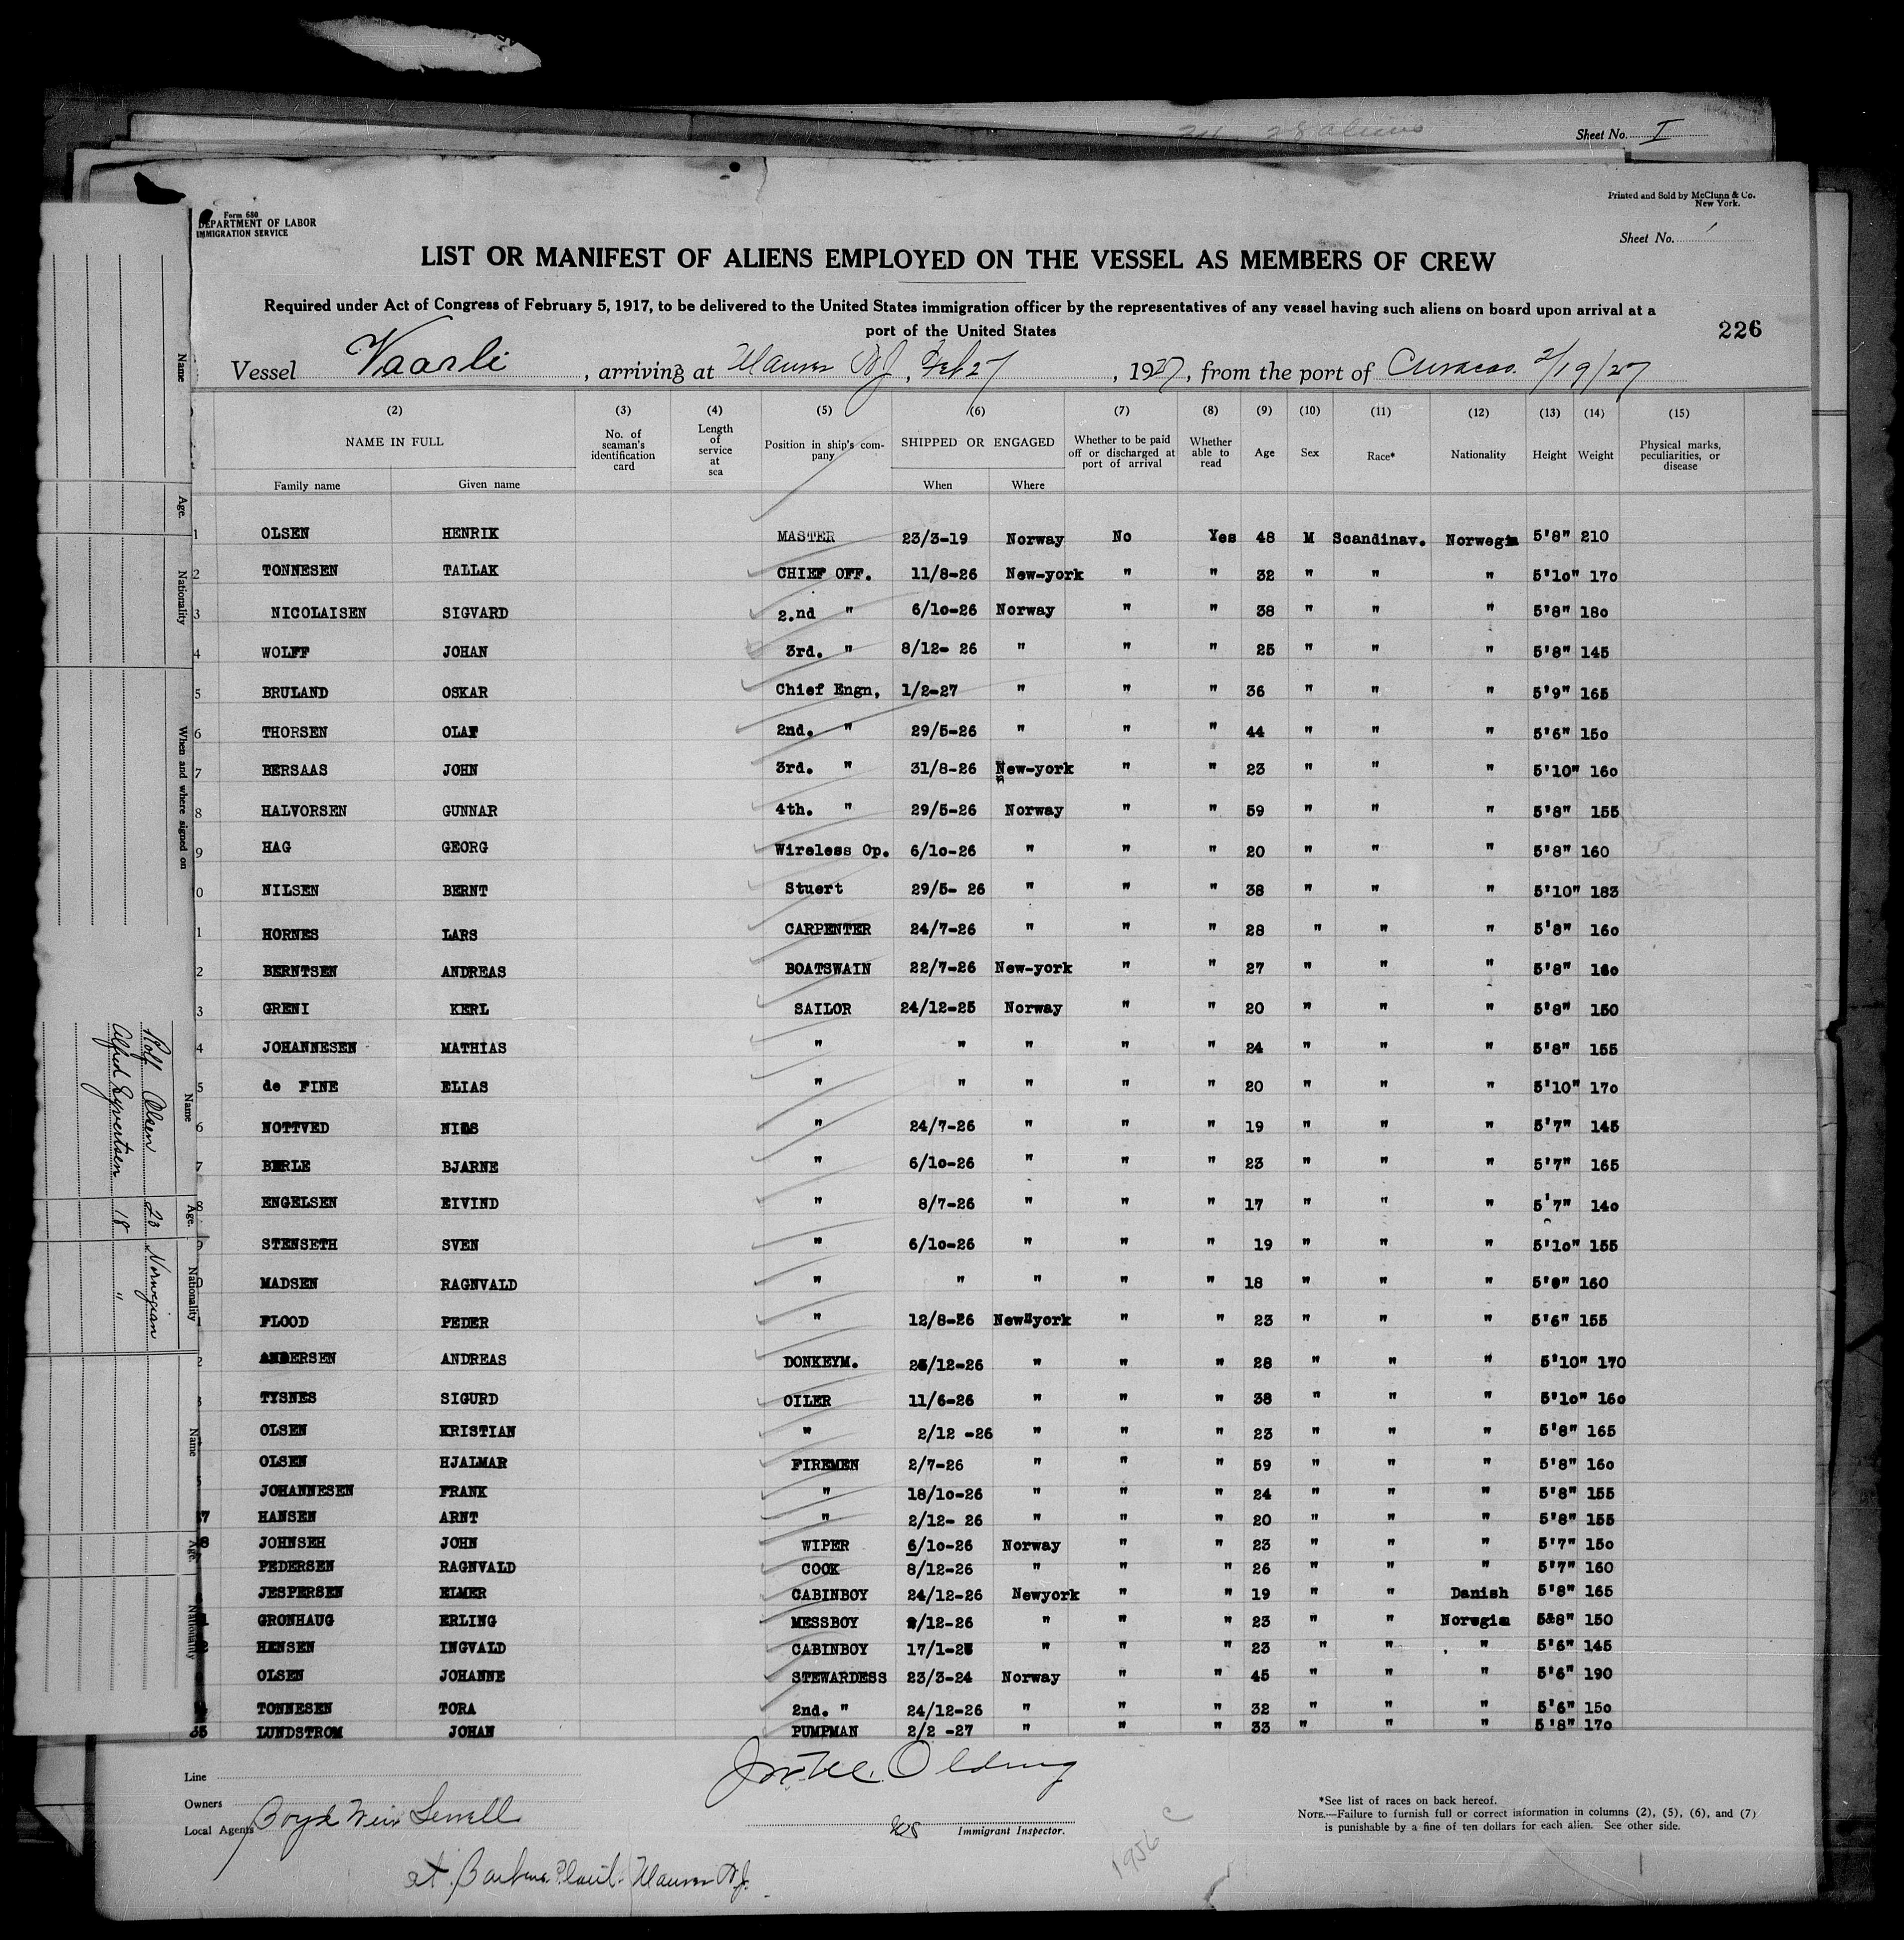 28 aliens
Sheet No. I
Printed and Sold by McClunn & Co.
New York.
Form 680
DEPARTMENT OF LABOR
IMMIGRATION SERVICE
Sheet No. 1
LIST OR MANIFEST OF ALIENS EMPLOYED ON THE VESSEL AS MEMBERS OF CREW
Required under Act of Congress of February 5, 1917, to be delivered to the United States immigration officer by the representatives of any vessel having such aliens on board upon arrival at a
port of the United States
226
Vessel Vaarli , arriving at Maurer NJ , Feb 27 , 1927, from the port of Curacao. 2/19/27
(2) (3) (4) (5) (6) (7) (8) (9) (10) (11) (12) (13) (14) (15)
NAME IN FULL No. of seaman's identification card Length of service at sea Position in ship's company SHIPPED OR ENGAGED Whether to be paid off or discharged at port of arrival Whether able to read Age Sex Race* Nationality Height Weight Physical marks, peculiarities, or disease
Family name Given name When Where
1 OLSEN HENRIK MASTER 23/3-19 Norway No Yes 48 M Scandinav. Norwegia 5'8" 210
2 TONNESEN TALLAK CHIEF OFF. 11/8-26 New-york " " 32 " " " 5'10" 170
3 NICOLAISEN SIGVARD 2.nd " 6/10-26 Norway " " 38 " " " 5'8" 180
4 WOLFF JOHAN 3rd. " 8/12- 26 " " " 25 " " " 5'8" 145
5 BRULAND OSKAR Chief Engn, 1/2-27 " " " 36 " " " 5'9" 165
6 THORSEN OLAF 2nd. " 29/5-26 " " " 44 " " " 5'6" 150
7 BERSAAS JOHN 3rd. " 31/8-26 New-york " " 23 " " " 5'10" 160
8 HALVORSEN GUNNAR 4th. " 29/5-26 Norway " " 59 " " " 5'8" 155
9 HAG GEORG Wireless Op. 6/10-26 " " " 20 " " " 5'8" 160
0 NILSEN BERNT Stuert 29/5- 26 " " " 38 " " " 5'10" 183
1 HORNES LARS CARPENTER 24/7-26 " " " 28 " " " 5'8" 160
2 BERNTSEN ANDREAS BOATSWAIN 22/7-26 New-york " " 27 " " " 5'8" 160
3 GRENI KERL SAILOR 24/12-25 Norway " " 20 " " " 5'8" 150
4 JOHANNESEN MATHIAS " " " " " 24 " " " 5'8" 155
5 de FINE ELIAS " " " " " 20 " " " 5'10" 170
6 NOTTVED NILS " 24/7-26 " " " 19 " " " 5'7" 145
7 BERLE BJARNE " 6/10-26 " " " 23 " " " 5'7" 165
8 ENGELSEN EIVIND " 8/7-26 " " " 17 " " " 5'7" 140
9 STENSETH SVEN " 6/10-26 " " " 19 " " " 5'10" 155
0 MADSEN RAGNVALD " " " " " 18 " " " 160
FLOOD PEDER " 12/8-26 New"york " " 23 " " " 5'6" 155
2 ANDERSEN ANDREAS DONKEYM. /12-26 " " " 28 " " " 5'10" 170
TYSNES SIGURD OILER 11/6-26 " " " 38 " " " 5'10" 160
OLSEN KRISTIAN " 2/12 -26 " " " 23 " " " 5'8" 165
OLSEN HJALMAR FIREMEN 2/7-26 " " " 59 " " " 5'8" 160
JOHANNESEN FRANK " 18/10-26 " " " 24 " " " 5'8" 155
7 HANSEN ARNT " 2/12- 26 " " " 20 " " " 5'8" 155
8 JOHNSEH JOHN WIPER 6/10-26 Norway " " 23 " " " 5'7" 150
PEDERSEN RAGNVALD COOK 8/12-26 " " " 26 " " " 5'7" 160
JESPERSEN ELMER CABINBOY 24/12-26 Newyork " " 19 " " Danish 5'8" 165
GRONHAUG ERLING MESSBOY /12-26 " " " 23 " " Norwegia 5&8" 150
HENSEN INGVALD CABINBOY 17/1- " " " 23 " " " 5'6" 145
OLSEN JOHANNE STEWARDESS 23/3-24 Norway " " 45 " " " 5'6" 190
TONNESEN TORA 2nd. " 24/12-26 " " " 32 " " " 5'6" 150
35 LUNDSTROM JOHAN PUMPMAN 2/2 -27 " " " 33 " " " 5'8" 170
Name
Age.
Nationality
When and where signed on
Name
Age.
Nationality
Rolf Olsen 20 Norwegian
Alfred Syvertsen 18 "
Name
Age.
Nationality
Line
Owners
Local Agents Boyd Weir Sewell
at Barber Plant. Maurer NJ.
Immigrant Inspector.
1956 C
*See list of races on back hereof.
NOTE.—Failure to furnish full or correct information in columns (2), (5), (6), and (7)
is punishable by a fine of ten dollars for each alien. See other side.